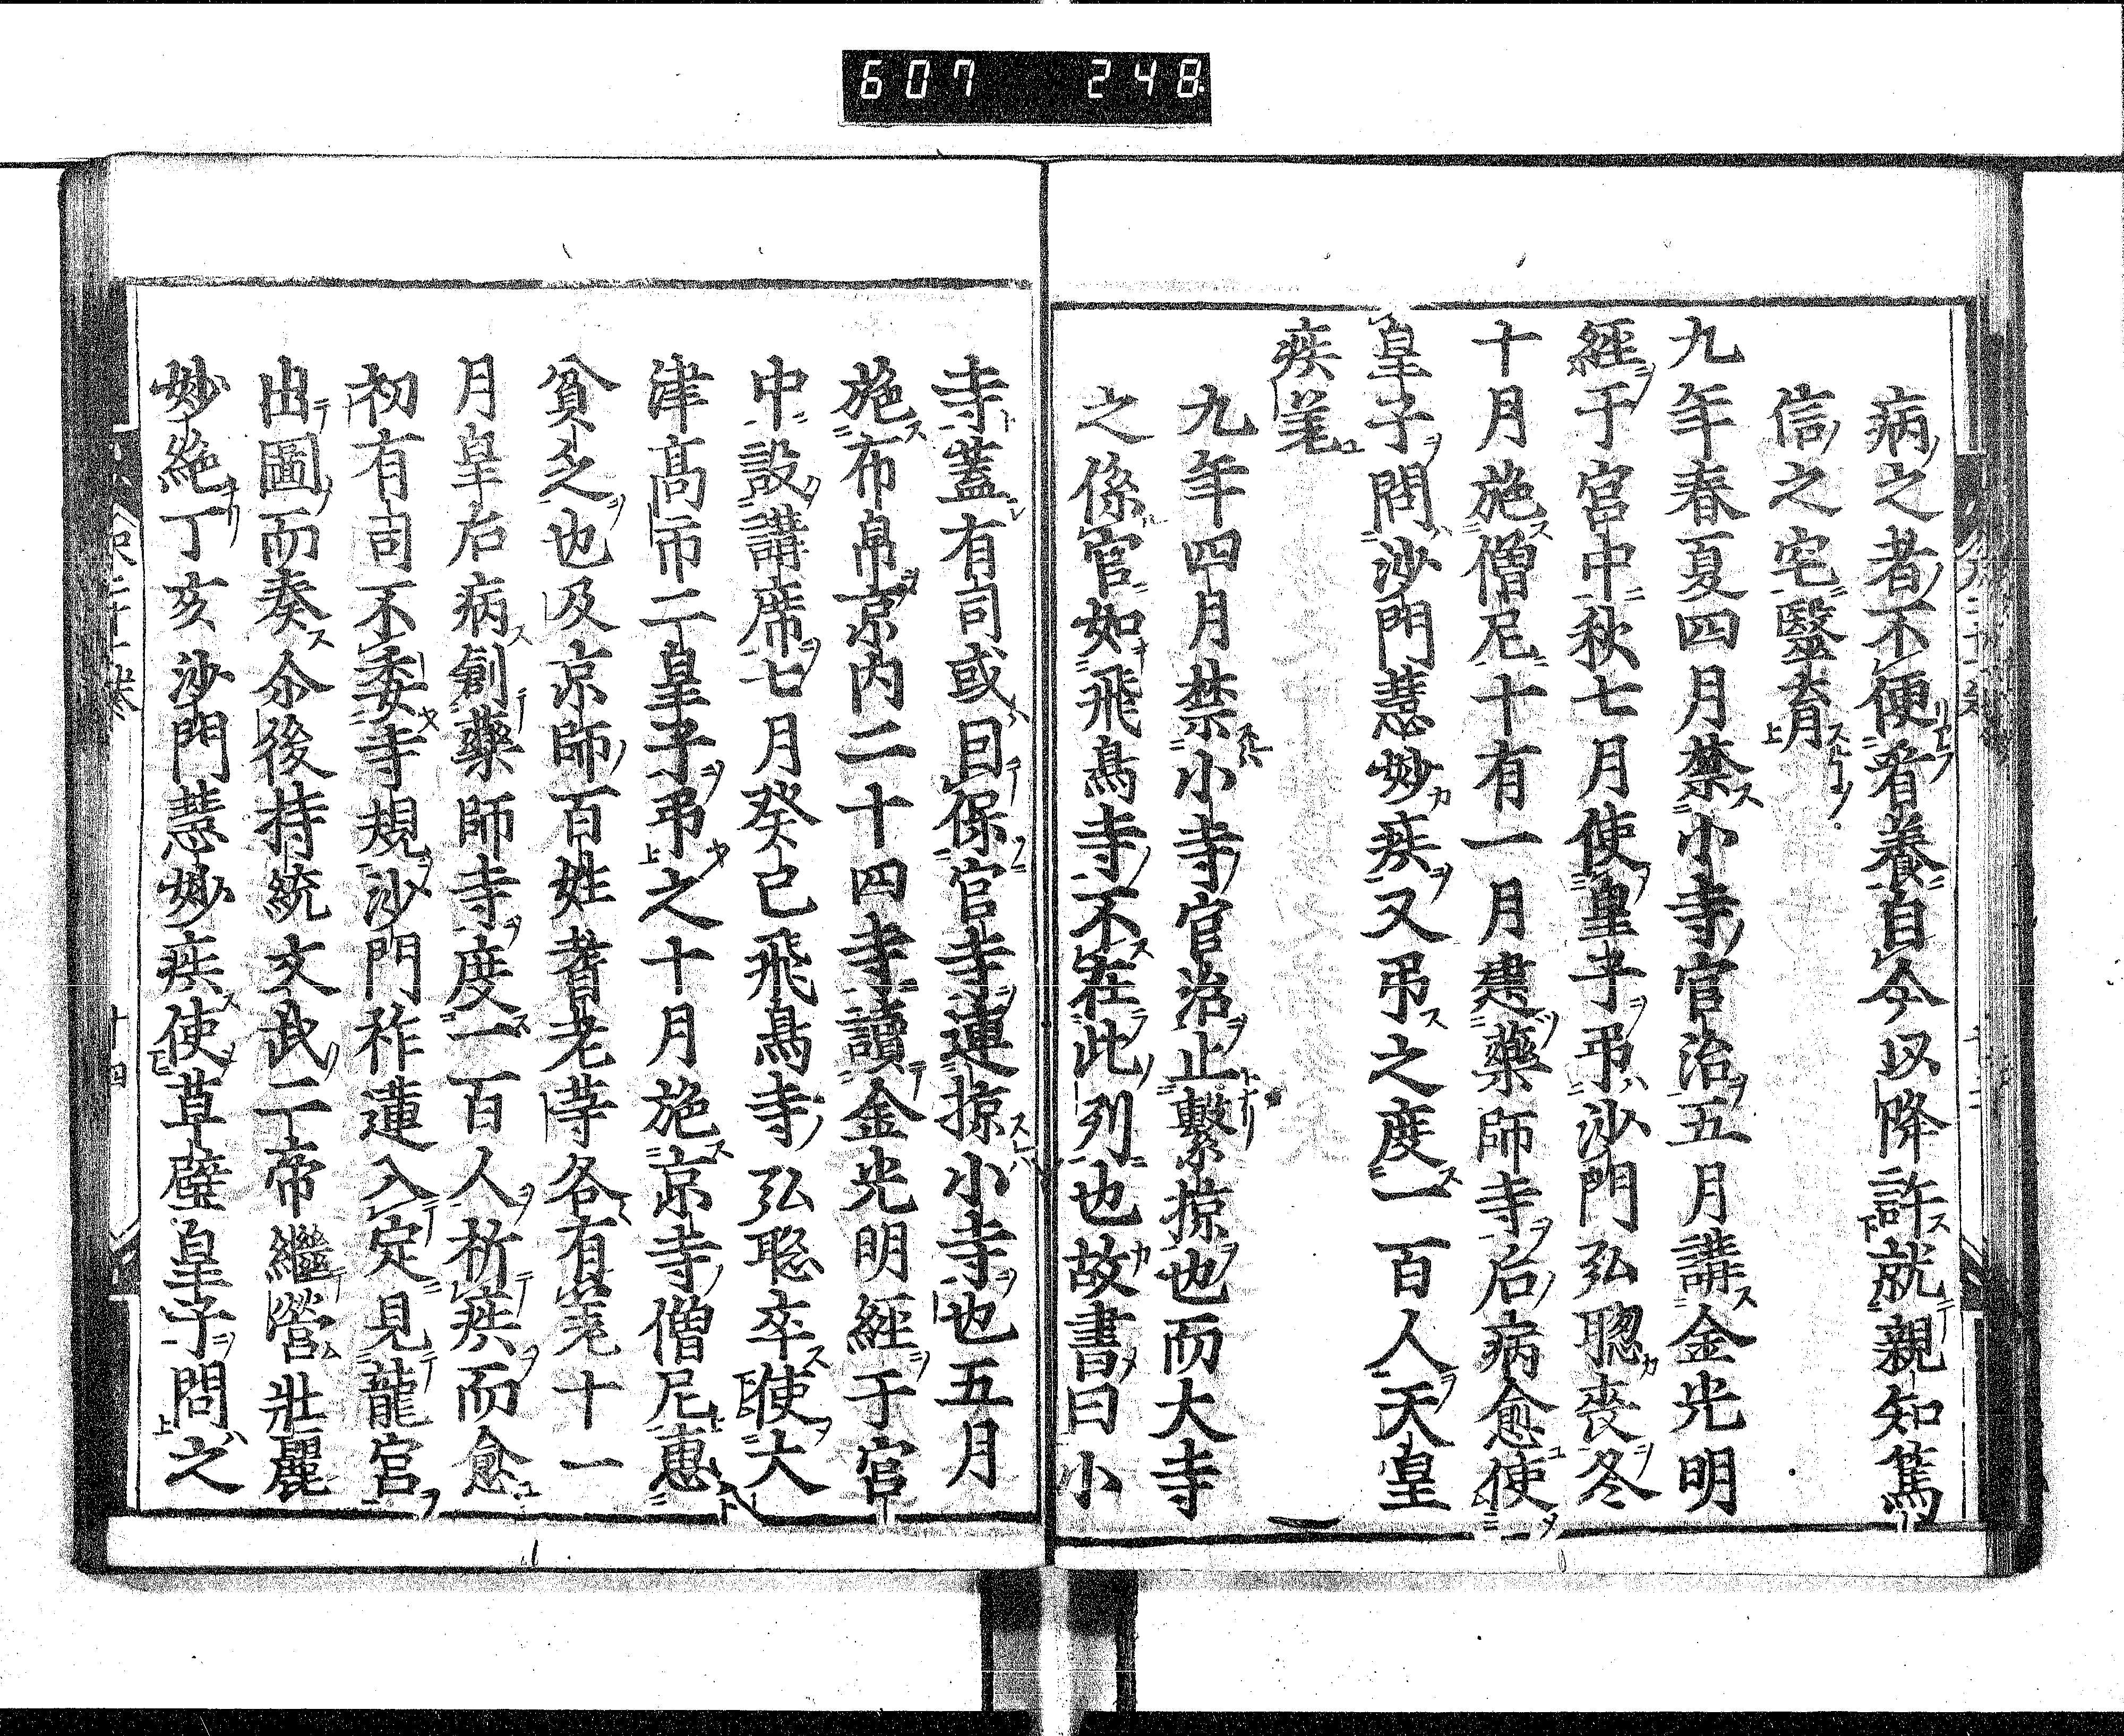 607 248
病之者不便看養自今以降許就親知篤
信之宅毉育
九年春夏四月禁小寺官治五月講金光明
經于宮中秋七月使皇子弔沙門弘聦喪冬
十月施僧尼十有一月建藥師寺后病愈使
皇子問沙門慧妙疾又弔之度一百人天皇
疾差
九年四月禁小寺官治止繫掠也而大寺
之係官如飛鳥寺不在此列也故書曰小
寺蓋有司或曰保官寺連掠小寺也五月
施布帛京内二十四寺讀金光明經于宮
中設講席七月癸巳飛鳥寺弘聦卒使大
津髙市二皇子弔之十月施京寺僧尼惠
貧乏也及京師百姓耆老𦬇各有差十一
月皇后病創藥師寺度一百人祈疾而愈
初有司不委寺規沙門祚蓮入定見龍宮
出圖而奏尒後持統文武二帝繼營壯麗
妙絶丁亥沙門慧妙疾使草壁皇子問之
十四